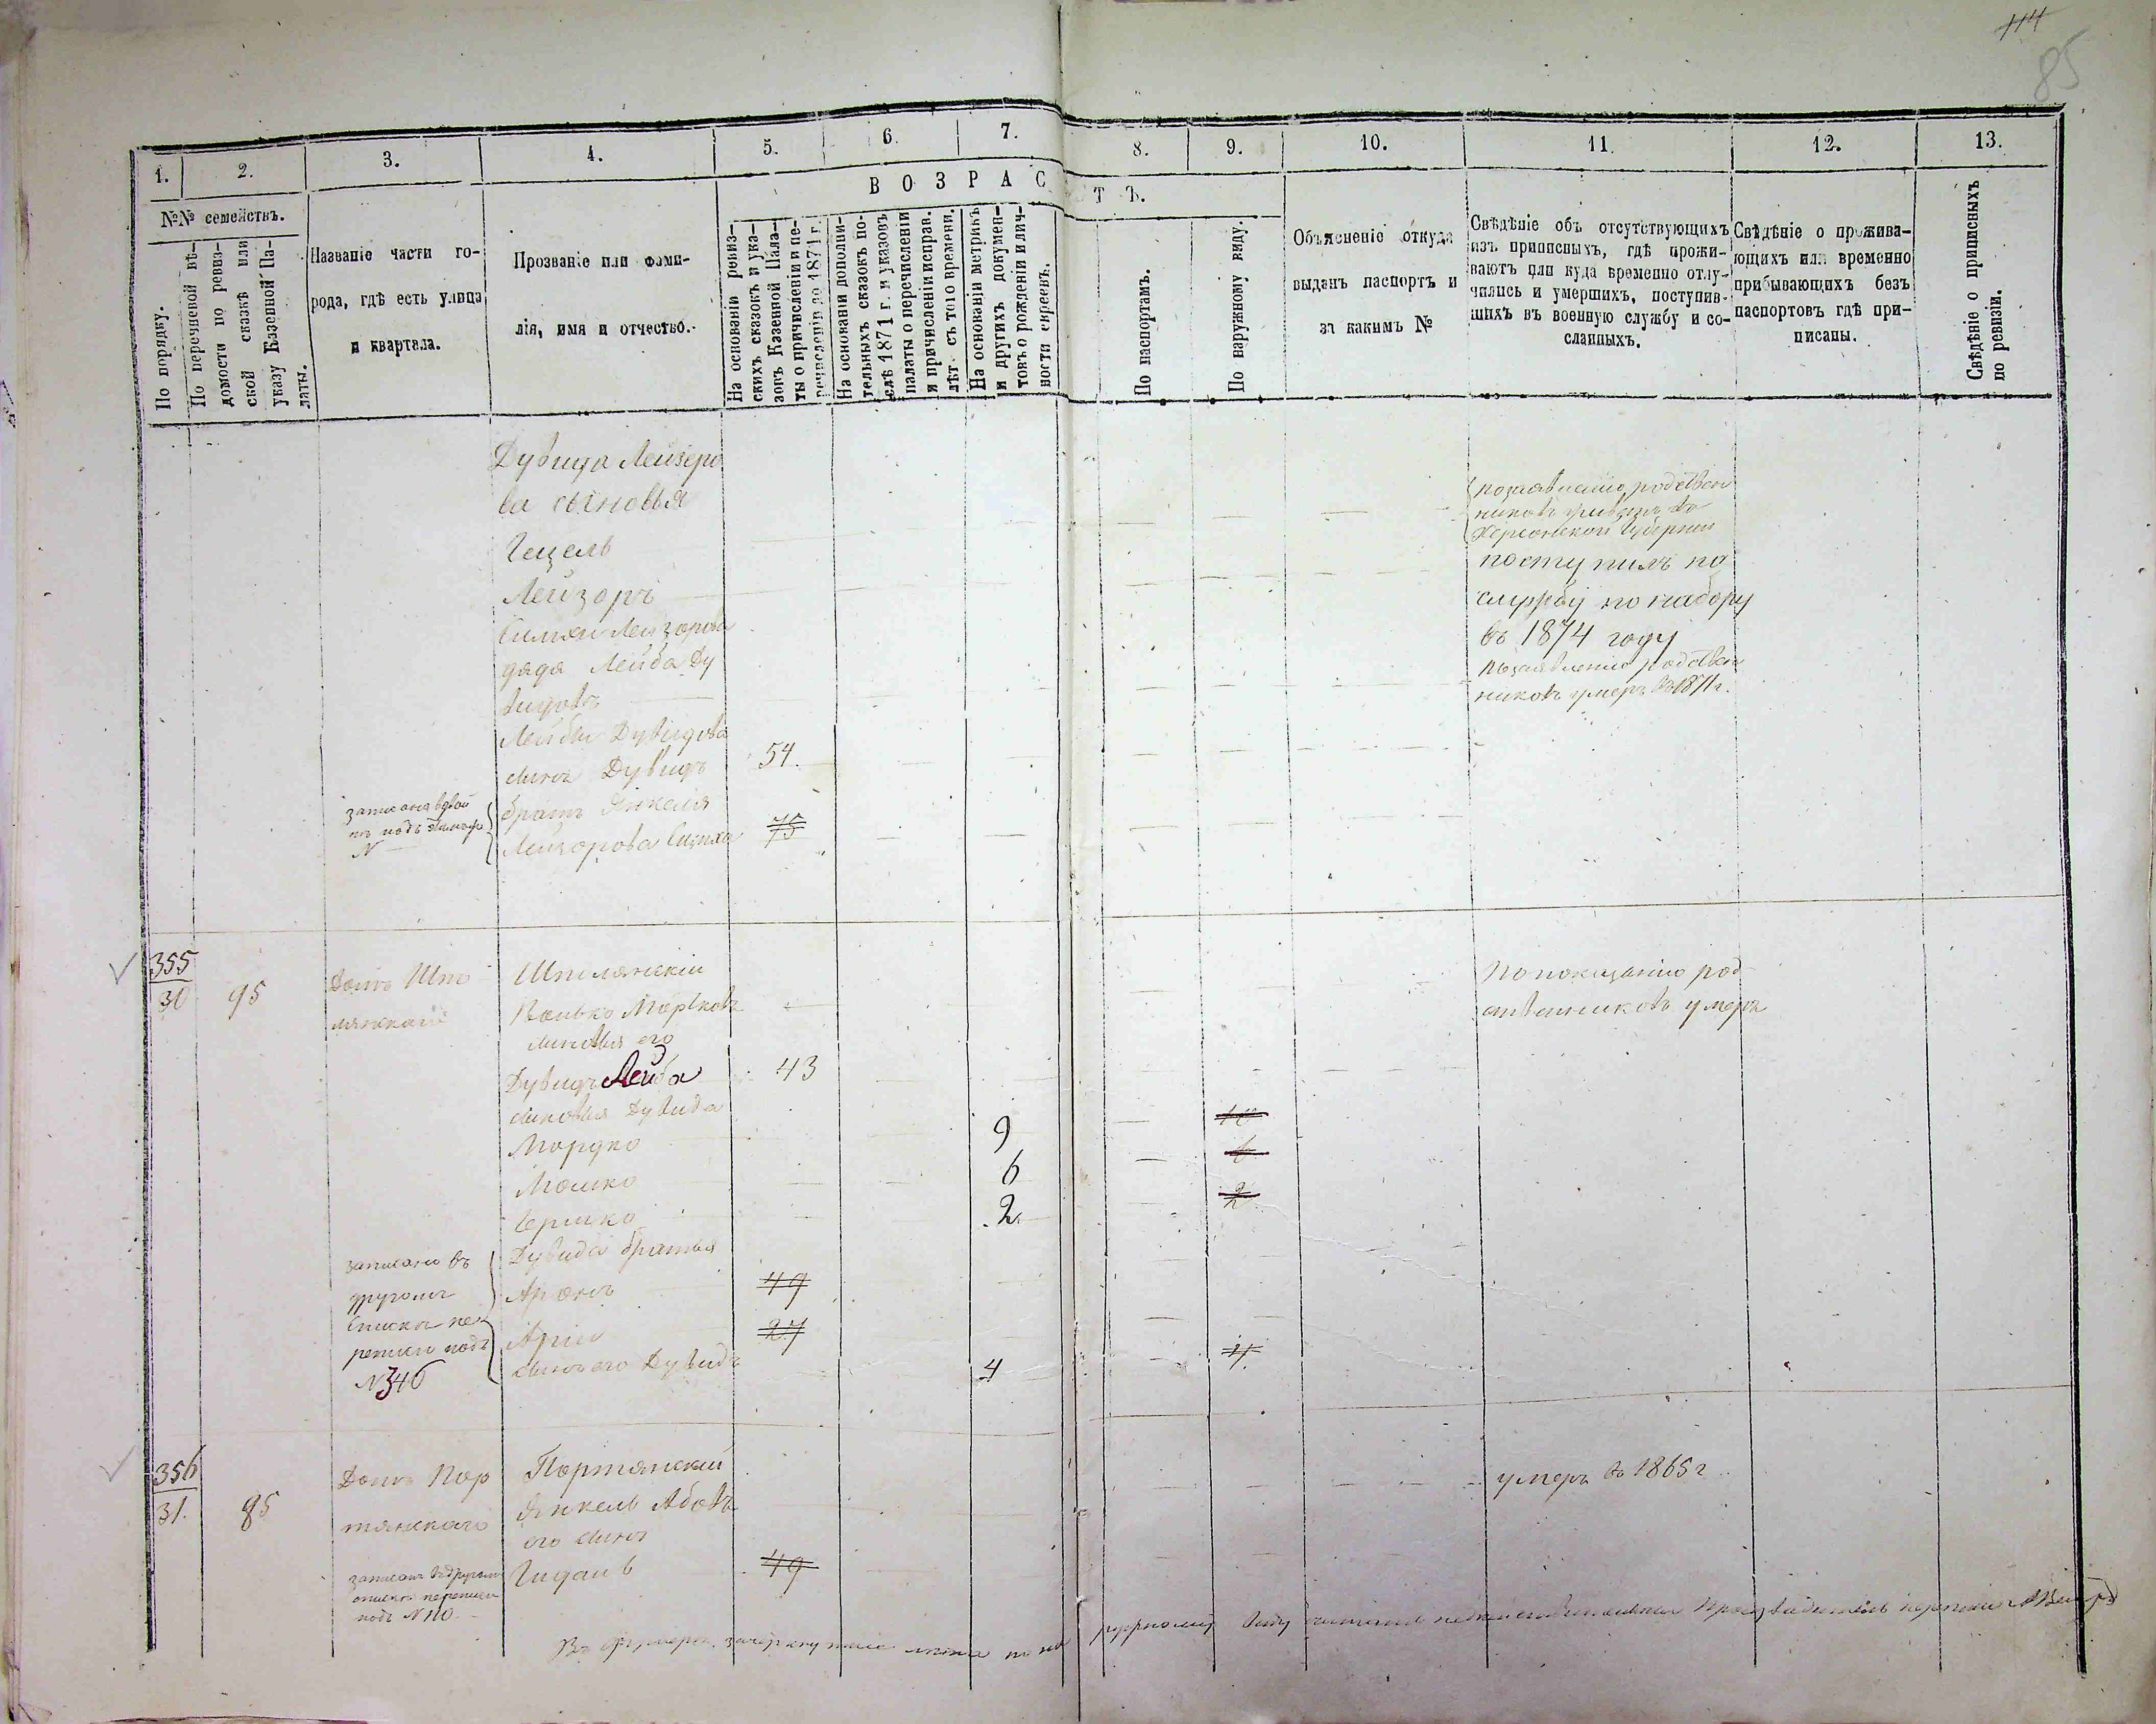 114
85
1.
2.
3.
4.
5.
6.
7.
8.
9.
10.
11.
12.
13.
№№ семействъ.
ВОЗРАСТЪ.
По порядку.
По перечневой вѣ-
домости по ревиз-
ской сказкѣ или
указу Казенной Па-
латы.
Названіе части го-
рода, гдѣ есть улица
и квартала.
Прозваніе или фами-
лія, имя и отчество.
На основаніи ревиз-
скихъ сказокъ и ука-
зовъ Казенной Пала-
ты о причисленіи и пе-
речисленіи до 1871 г.
На основаніи дополни-
тельныхъ сказокъ по-
слѣ 1871 г. и указовъ
палаты о перечисленіи
и причисленіи исправ.
лѣт съ того времени.
На основаніи метрикъ
и другихъ докумен-
товъ о рожденіи и лич-
ности евреевъ.
По паспортамъ.
По наружному виду.
Объясненіе откуда
выданъ паспортъ и
за какимъ №
Свѣдѣніе объ отсутствующихъ
изъ приписныхъ, гдѣ прожи-
ваютъ или куда временно отлу-
чились и умершихъ, поступив-
шихъ въ военную службу и со-
сланныхъ.
Свѣдѣніе о прожива-
ющихъ или временно
прибывающихъ безъ
паспортовъ гдѣ при-
писаны.
Свѣдѣніе о приписныхъ
по ревизіи.
Дувида Лейзеро
ва сыновья
Гецель
по заявленію родствен
никовъ
Херсонской Губерніи
Лейзоръ
поступилъ на
службу по набору
въ 1874 году
Лейзорова
дядя Лейба Ду
видовъ
по заявленію родствен
никовъ умеръ въ 1871 г.
Лейбы Дувидова
сынъ Дувидъ 54.
записана
подъ
N
братъ Янкеля
Лейзорова 75
355
30
95
Домъ Шпо
лянскаго
Шполянскій
Мортковъ
По показанію род
ственниковъ умеръ
сыновья его
Дувидъ Лейба 43
сыновья Дувида
Мордко 9 10
Мошко 6 6
Гершко 2 2
записаны въ
другомъ
списке пе
реписи подъ
N 346
Дувида братья
Аронъ 49
Арія 27
сынъ его Дувидъ 4 4
356
31.
85
Домъ Пор
тянскаго
Портянскій
Янкель Абовъ
умеръ въ 1865 г
его сынъ
записанъ въ другомъ
списке переписи
подъ N 110
49